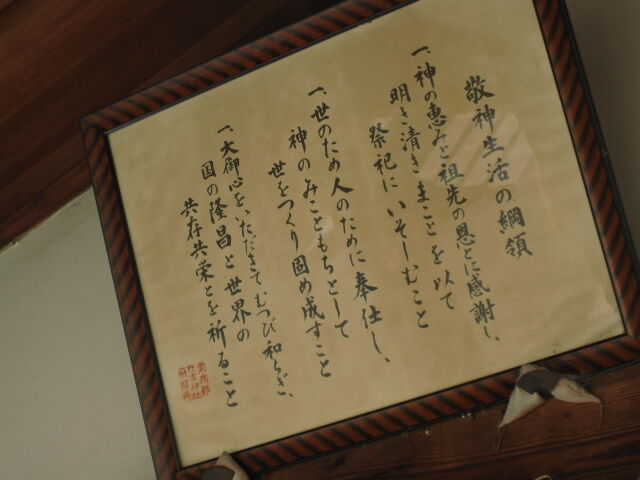 敬神生活の綱領
一、神の恵みと祖先の恩とに感謝し、
明き清きまことを以て
祭祀にいそしむこと
一、世のため人のために奉仕し、
神のみこともちとして
世をつくり固め成すこと
一、大御心をいたゞきてむつび和らぎ、
国の隆昌と世界の
共存共栄とを祈ること